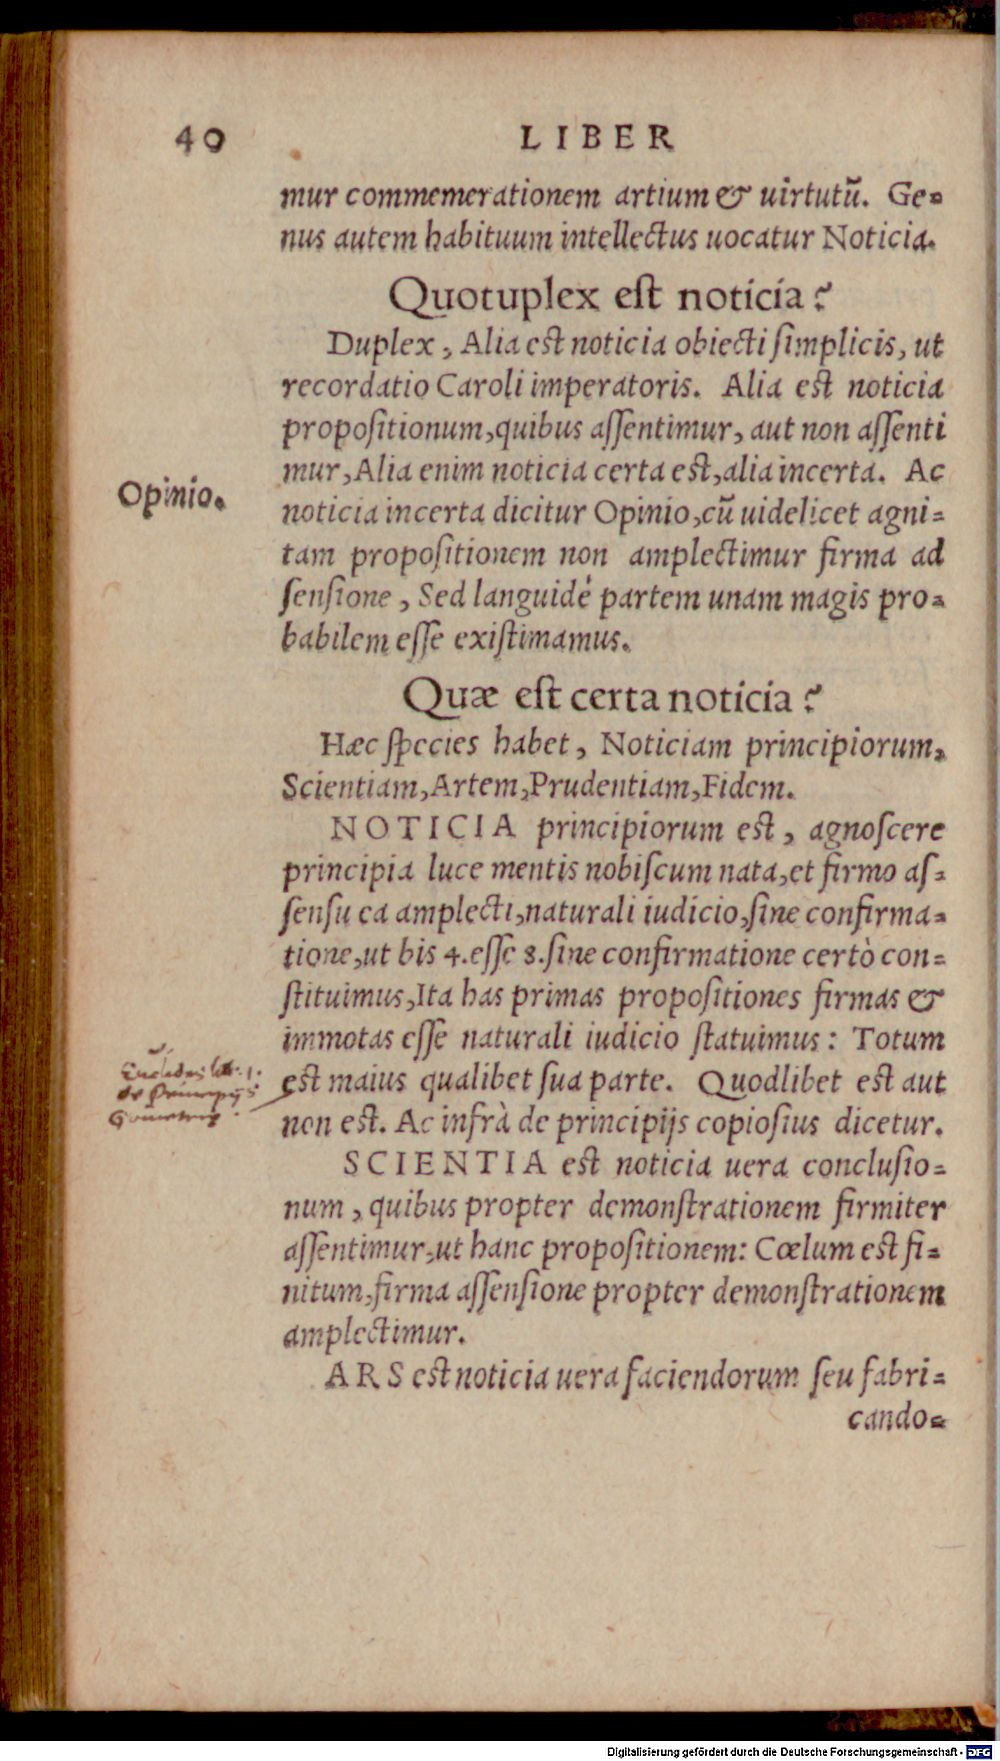 40 LIBER
mur commemerationem artium & uirtutū. Ge-
nus autem habituum intellectus uocatur Noticia.
Quotuplex est noticia?
Duplex, Alia est noticia obiecti simplicis, ut
recordatio Caroli imperatoris. Alia est noticia
propositionum, quibus assentimur, aut non assenti
mur, Alia enim noticia certa est, alia incerta. Ac
Opinio.
noticia incerta dicitur Opinio, cū uidelicet agni-
tam propositionem non amplectimur firma ad
sensione, Sed languidé partem unam magis pro-
babilem esse existimamus.
Quæ est certa noticia?
Hæc species habet, Noticiam principiorum,
Scientiam, Artem, Prudentiam, Fidem.
NOTICIA principiorum est, agnoscere
principia luce mentis nobiscum nata, et firmo as-
sensu ea amplecti, naturali iudicio, sine confirma-
tione, ut bis 4. esse 8. sine confirmatione certò con-
stituimus, Ita has primas propositiones firmas &
immotas esse naturali iudicio statuimus: Totum
Euclides lib. 1.
de Principijs
est maius qualibet sua parte. Quodlibet est aut
non est. Ac infrà de principijs copiosius dicetur.
SCIENTIA est noticia uera conclusio-
num, quibus propter demonstrationem firmiter
assentimur, ut hanc propositionem: Cœlum est fi-
nitum, firma assensione propter demonstrationem
amplectimur.
ARS est noticia uera faciendorum seu fabri-
cando-
Digitalisierung gefördert durch die Deutsche Forschungsgemeinschaft - DFG